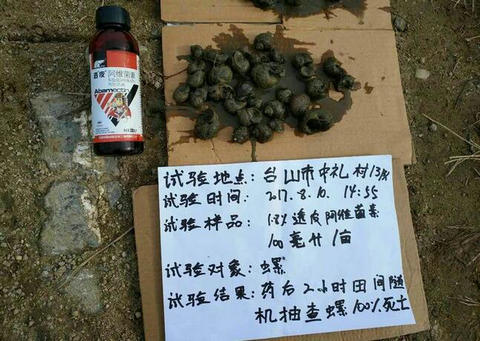 阿维菌素
Abamectin
试验地点：台山市中礼村13队
试验时间：2017.8.10. 14:55
试验样品：1.8%透皮阿维菌素
100毫升/亩
试验对象：螺
试验结果：药后2小时田间随
机抽查螺100%死亡